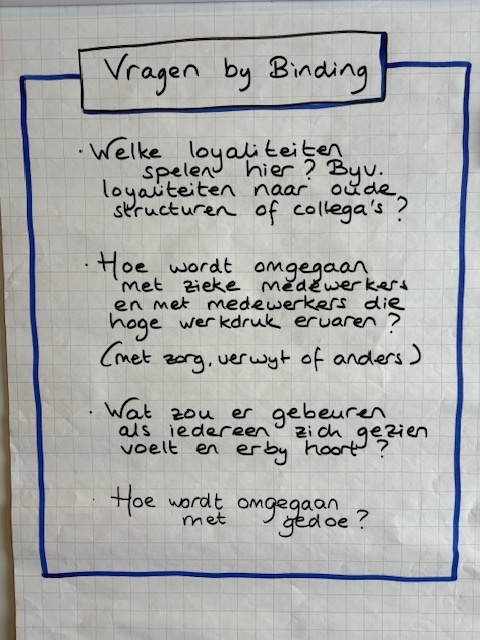 Vragen by Binding
· Welke loyaliteiten
spelen hier? Byv.
loyaliteiten naar oude
structuren of collega's?
· Hoe wordt omgegaan
met zieke medewerkers
en met medewerkers die
hoge werkdruk ervaren?
(met zorg, verwyt of anders)
· Wat zou er gebeuren
als iedereen zich gezien
voelt en erby hoort?
· Hoe wordt omgegaan
met gedoe?